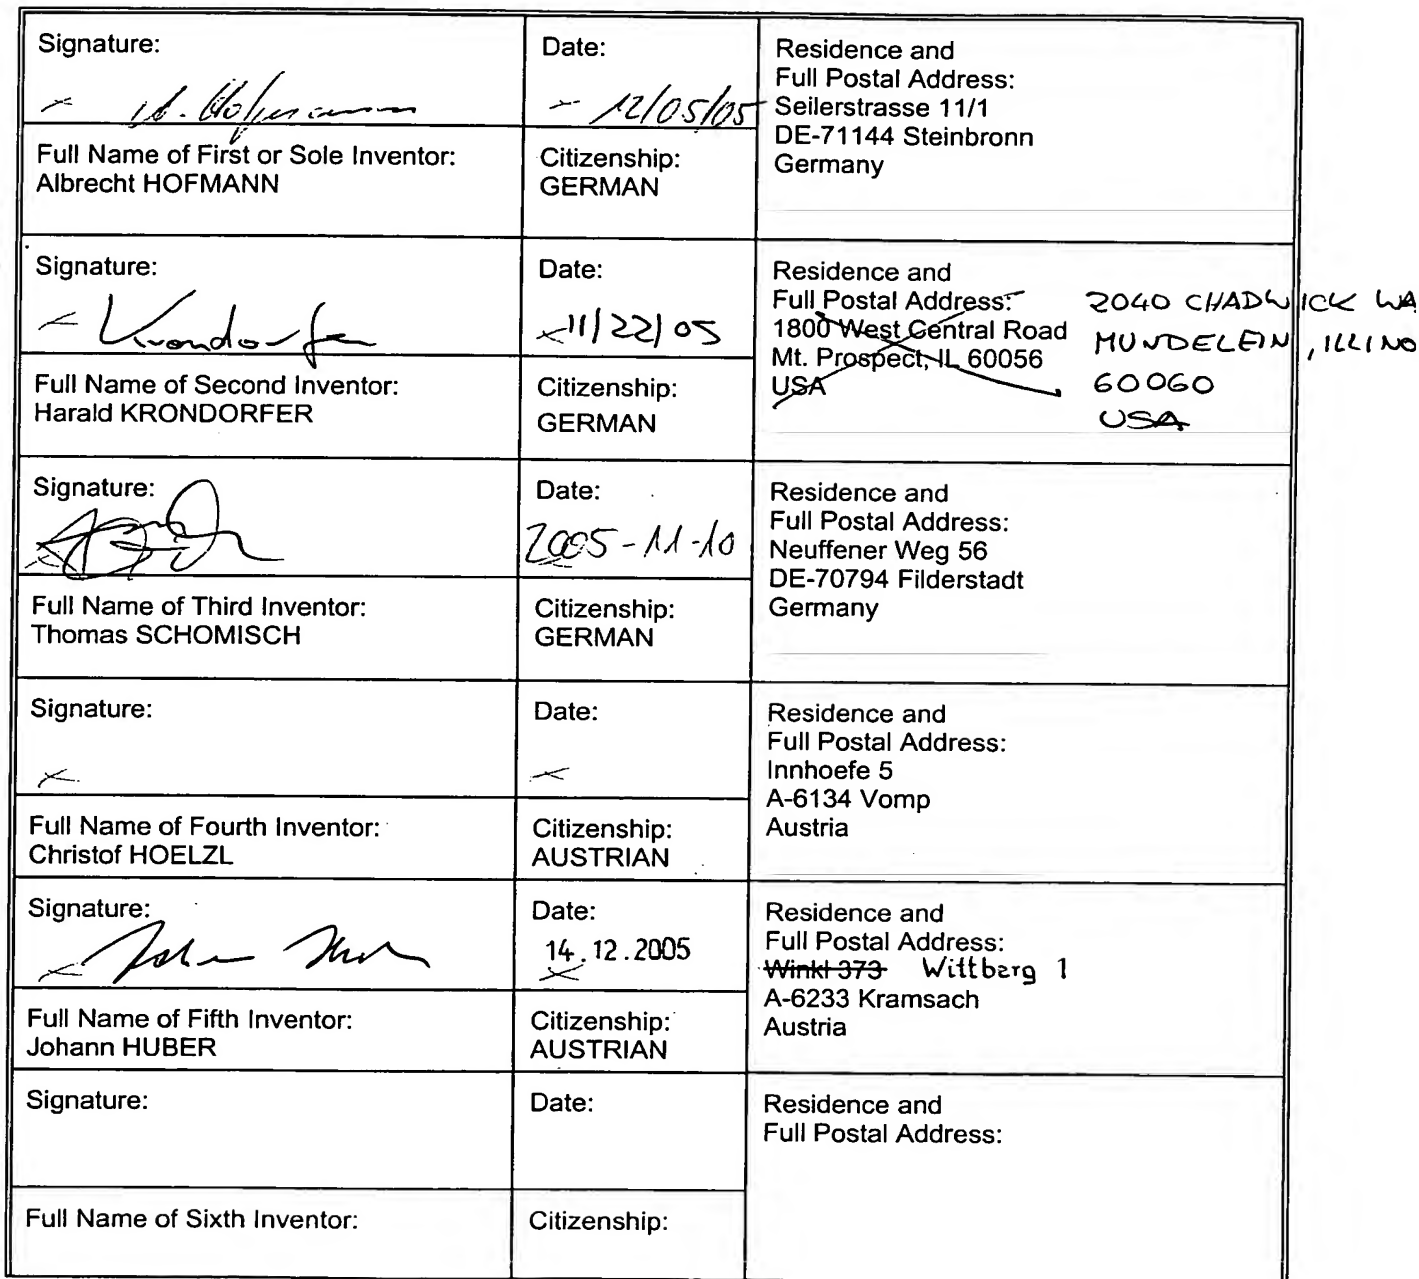 Signature:
Date:
12/05/05
Residence and
Full Postal Address:
Seilerstrasse 11/1
DE-71144 Steinbronn
Germany
Full Name of First or Sole Inventor:
Albrecht HOFMANN
Citizenship:
GERMAN
Signature:
Krondorfer
Date:
11/22/05
Residence and
Full Postal Address:
1800 West Central Road
Mt. Prospect, IL 60056
USA
2040 CHADWICK WA
MUNDELEIN, ILLINO
60060
USA
Full Name of Second Inventor:
Harald KRONDORFER
Citizenship:
GERMAN
Signature:
Date:
2005-11-10
Residence and
Full Postal Address:
Neuffener Weg 56
DE-70794 Filderstadt
Germany
Full Name of Third Inventor:
Thomas SCHOMISCH
Citizenship:
GERMAN
Signature:
Date:
Residence and
Full Postal Address:
Innhoefe 5
A-6134 Vomp
Austria
Full Name of Fourth Inventor:
Christof HOELZL
Citizenship:
AUSTRIAN
Signature:
Date:
14.12.2005
Residence and
Full Postal Address:
Winkl 373 Wittberg 1
A-6233 Kramsach
Austria
Full Name of Fifth Inventor:
Johann HUBER
Citizenship:
AUSTRIAN
Signature:
Date:
Residence and
Full Postal Address:
Full Name of Sixth Inventor:
Citizenship: